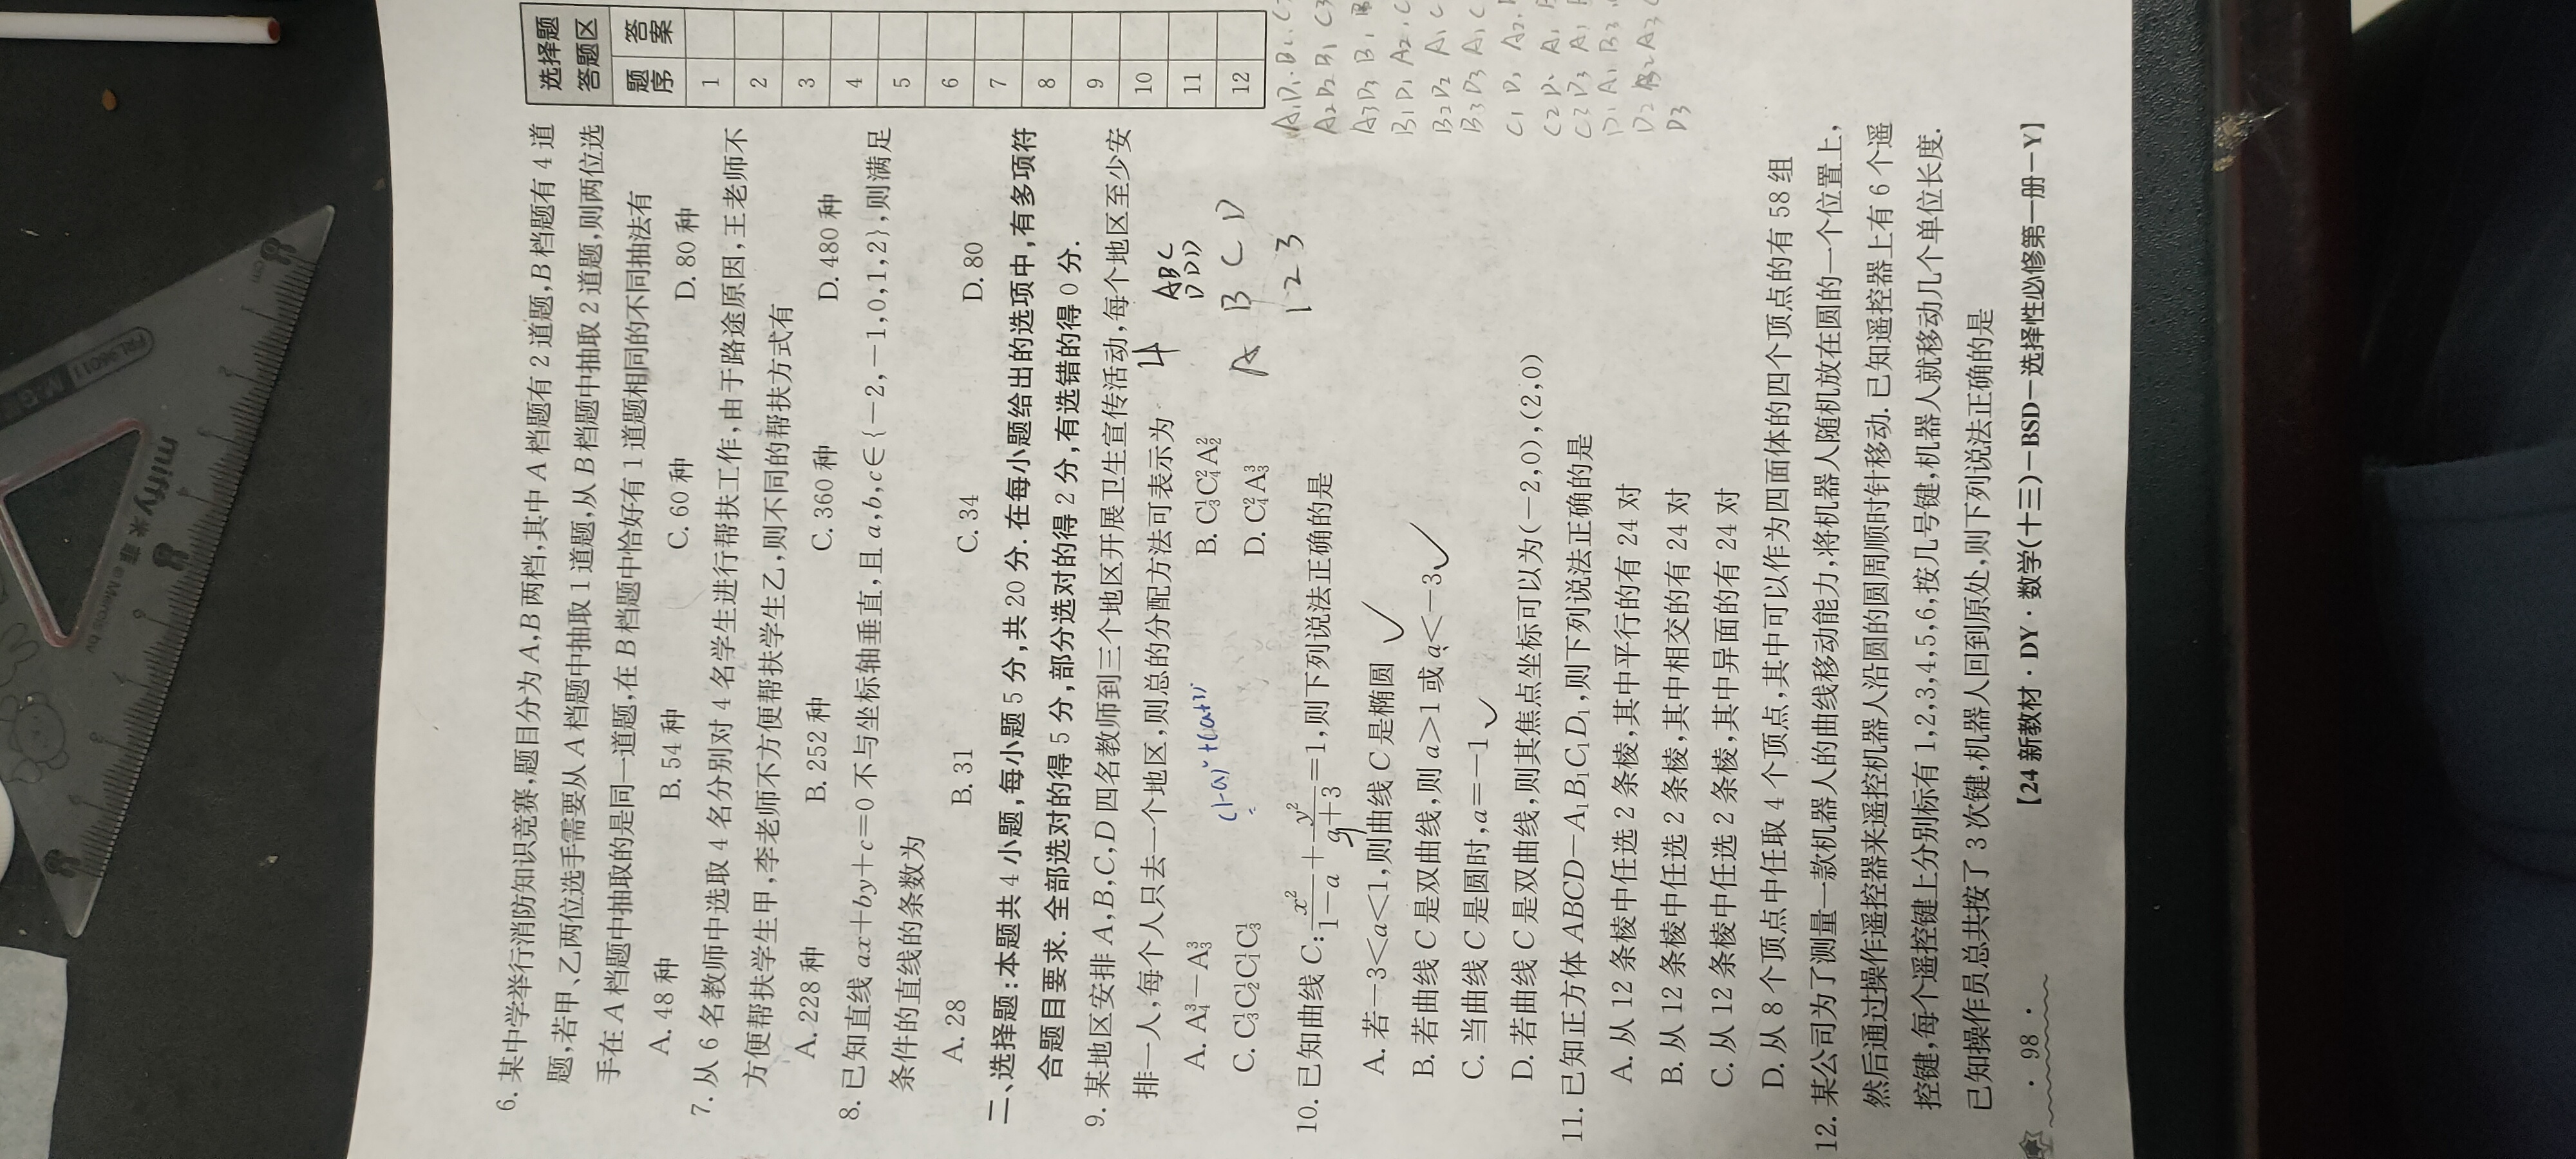 6. 某中学举行消防知识竞赛,题目分为A,B两档,其中A档题有2道题,B档题有4道
题,若甲、乙两位选手需要从A档题中抽取1道题,从B档题中抽取2道题,则两位选
手在A档题中抽取的是同一道题,在B档题中恰好有1道题相同的不同抽法有
A. 48种 B. 54种 C. 60种 D. 80种
7. 从6名教师中选取4名分别对4名学生进行帮扶工作,由于路途原因,王老师不
方便帮扶学生甲,李老师不方便帮扶学生乙,则不同的帮扶方式有
A. 228种 B. 252种 C. 360种 D. 480种
8. 已知直线ax+by+c=0不与坐标轴垂直,且a,b,c∈{-2,-1,0,1,2},则满足
条件的直线的条数为
A. 28 B. 31 C. 34 D. 80
二、选择题:本题共4小题,每小题5分,共20分.在每小题给出的选项中,有多项符
合题目要求.全部选对的得5分,部分选对的得2分,有选错的得0分.
9. 某地区安排A,B,C,D四名教师到三个地区开展卫生宣传活动,每个地区至少安
排一人,每个人只去一个地区,则总的分配方法可表示为
A. A₄³-A₃³ B. C₃¹C₄²A₂²
C. C₃¹C₂¹C₁¹C₃¹ D. C₄²A₃³
4
ABC
DDD
A B C D
1 2 3
10. 已知曲线C: x²/(1-a) + y²/(a+3) =1,则下列说法正确的是
A. 若-3<a<1,则曲线C是椭圆 ✓
B. 若曲线C是双曲线,则a>1或a<-3 ✓
C. 当曲线C是圆时,a=-1 ✓
D. 若曲线C是双曲线,则其焦点坐标可以为(-2,0),(2,0)
11. 已知正方体ABCD-A₁B₁C₁D₁,则下列说法正确的是
A. 从12条棱中任选2条棱,其中平行的有24对
B. 从12条棱中任选2条棱,其中相交的有24对
C. 从12条棱中任选2条棱,其中异面的有24对
D. 从8个顶点中任取4个顶点,其中可以作为四面体的四个顶点的有58组
12. 某公司为了测量一款机器人的曲线移动能力,将机器人随机放在圆的一个位置上,
然后通过操作遥控器来遥控机器人沿圆的圆周顺时针移动.已知遥控器上有6个遥
控键,每个遥控键上分别标有1,2,3,4,5,6,按几号键,机器人就移动几个单位长度.
已知操作员总共按了3次键,机器人回到原处,则下列说法正确的是
· 98 ·
【24新教材·DY·数学(十三)-BSD-选择性必修第一册-Y】
选择题
答题区
题序 答案
1
2
3
4
5
6
7
8
9
10
11
12
miffy